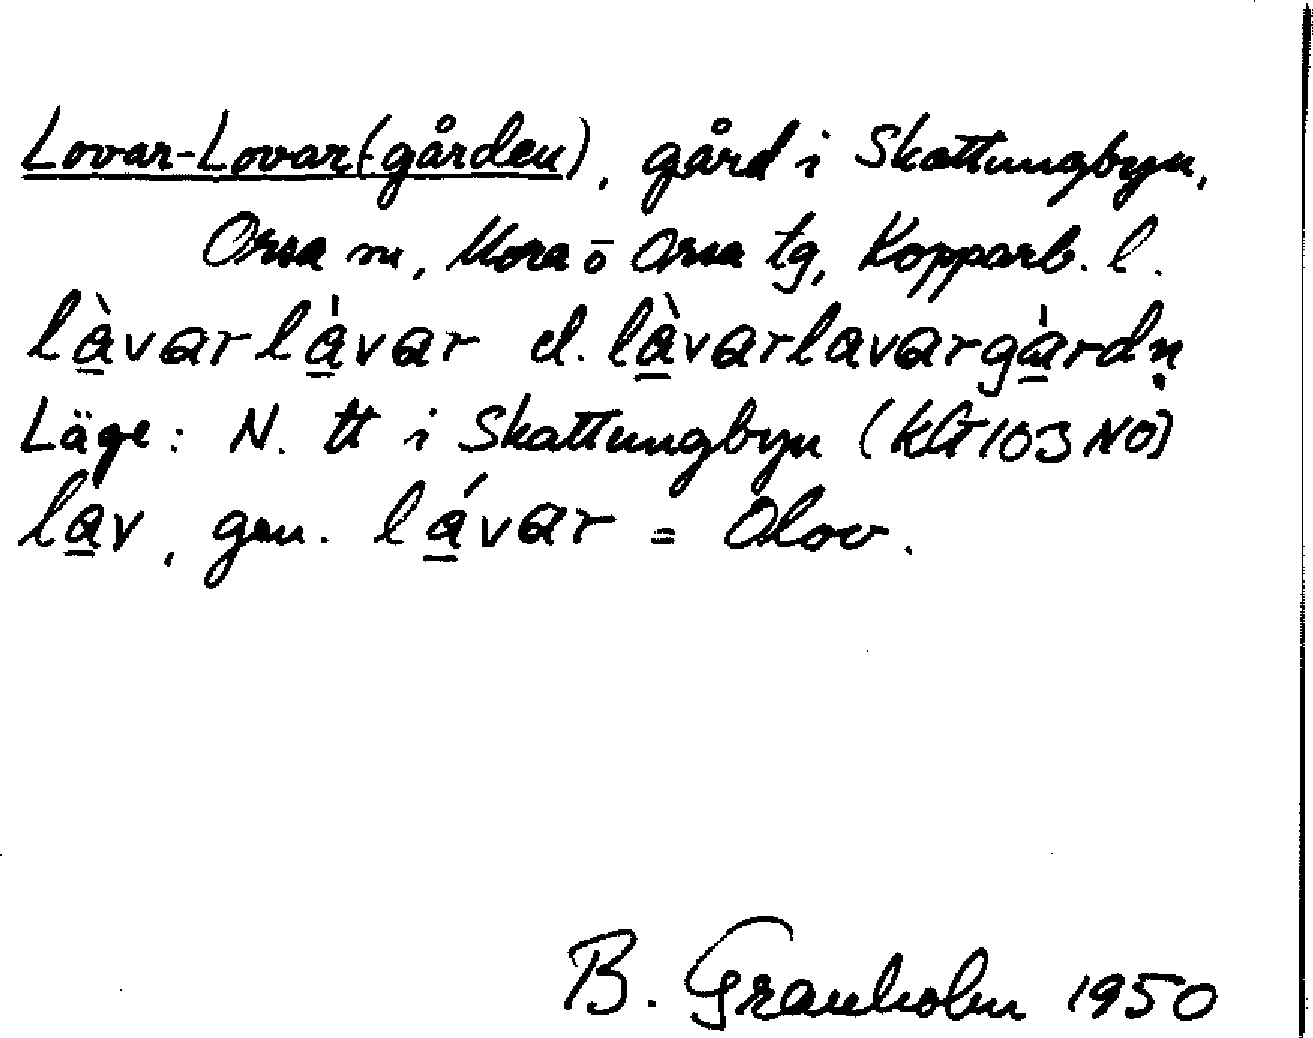 Lovar-Lovar(-gården), gård i Skattungbyn,
Orsa sn, Mora o Orsa tg, Kopparb. l.
là̱varla̱̍var el. là̱varlavarga̱̍rdṇ
Läge: N. tt i Skattungbyn (KG 103 NO)
la̱̍v, gen. lá̱var = Olov.
B. Granholm 1950